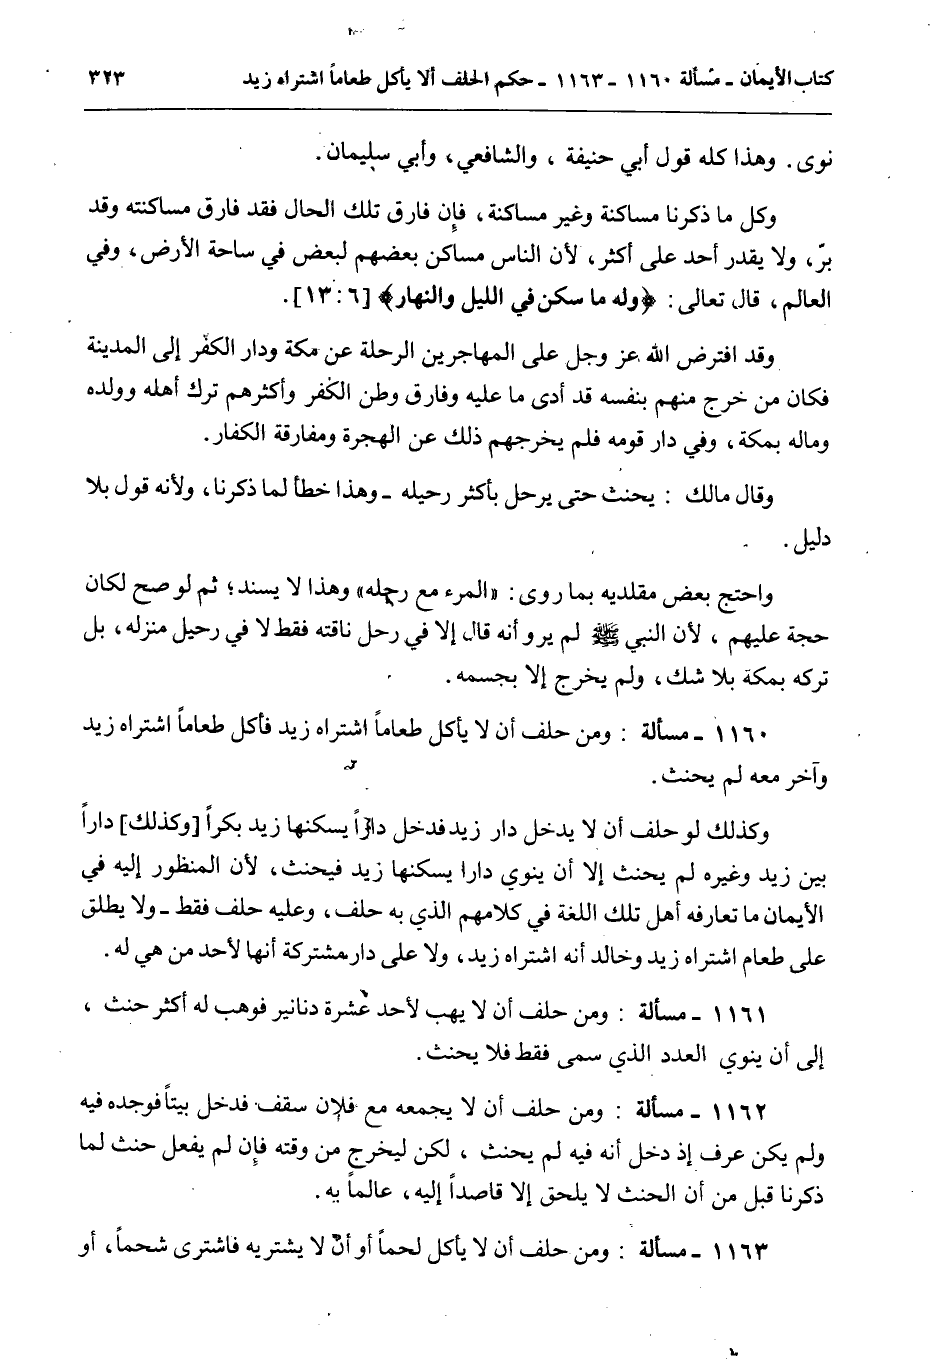 كتاب الأيمان ـ مسألة ١١٦٠ ـ ١١٦٣ ـ حكم الحلف ألا يأكل طعاماً اشتراه زيد ٣٢٣
نوى. وهذا كله قول أبي حنيفة ، والشافعي، وأبي سليمان.
وكل ما ذكرنا مساكنة وغير مساكنة، فإن فارق تلك الحال فقد فارق مساكنته وقد
برّ، ولا يقدر أحد على أكثر، لأن الناس مساكن بعضهم لبعض في ساحة الأرض، وفي
العالم، قال تعالى: ﴿وله ما سكن في الليل والنهار﴾ [٦ : ١٣].
وقد افترض الله عز وجل على المهاجرين الرحلة عن مكة ودار الكفر إلى المدينة
فكان من خرج منهم بنفسه قد أدى ما عليه وفارق وطن الكفر وأكثرهم ترك أهله وولده
وماله بمكة، وفي دار قومه فلم يخرجهم ذلك عن الهجرة ومفارقة الكفار.
وقال مالك : يحنث حتى يرحل بأكثر رحيله ـ وهذا خطأ لما ذكرنا، ولأنه قول بلا
دليل.
واحتج بعض مقلديه بما روى: «المرء مع رحله» وهذا لا يسند؛ ثم لو صح لكان
حجة عليهم ، لأن النبي ﷺ لم يرو أنه قال إلا في رحل ناقته فقط لا في رحيل منزله، بل
تركه بمكة بلا شك، ولم يخرج إلا بجسمه.
١١٦٠ ـ مسألة : ومن حلف أن لا يأكل طعاماً اشتراه زيد فأكل طعاماً اشتراه زيد
وآخر معه لم يحنث.
وكذلك لو حلف أن لا يدخل دار زيد فدخل داراً يسكنها زيد بكراً [وكذلك] داراً
بين زيد وغيره لم يحنث إلا أن ينوي دارا يسكنها زيد فيحنث، لأن المنظور إليه في
الأيمان ما تعارفه أهل تلك اللغة في كلامهم الذي به حلف، وعليه حلف فقط ـ ولا يطلق
على طعام اشتراه زيد وخالد أنه اشتراه زيد، ولا على دار مشتركة أنها لأحد من هي له.
١١٦١ ـ مسألة : ومن حلف أن لا يهب لأحد عشرة دنانير فوهب له أكثر حنث ،
إلى أن ينوي العدد الذي سمى فقط فلا يحنث.
١١٦٢ ـ مسألة : ومن حلف أن لا يجمعه مع فلان سقف فدخل بيتاً فوجده فيه
ولم يكن عرف إذ دخل أنه فيه لم يحنث ، لكن ليخرج من وقته فإن لم يفعل حنث لما
ذكرنا قبل من أن الحنث لا يلحق إلا قاصداً إليه، عالماً به.
١١٦٣ ـ مسألة : ومن حلف أن لا يأكل لحماً أو أن لا يشتريه فاشترى شحماً، أو